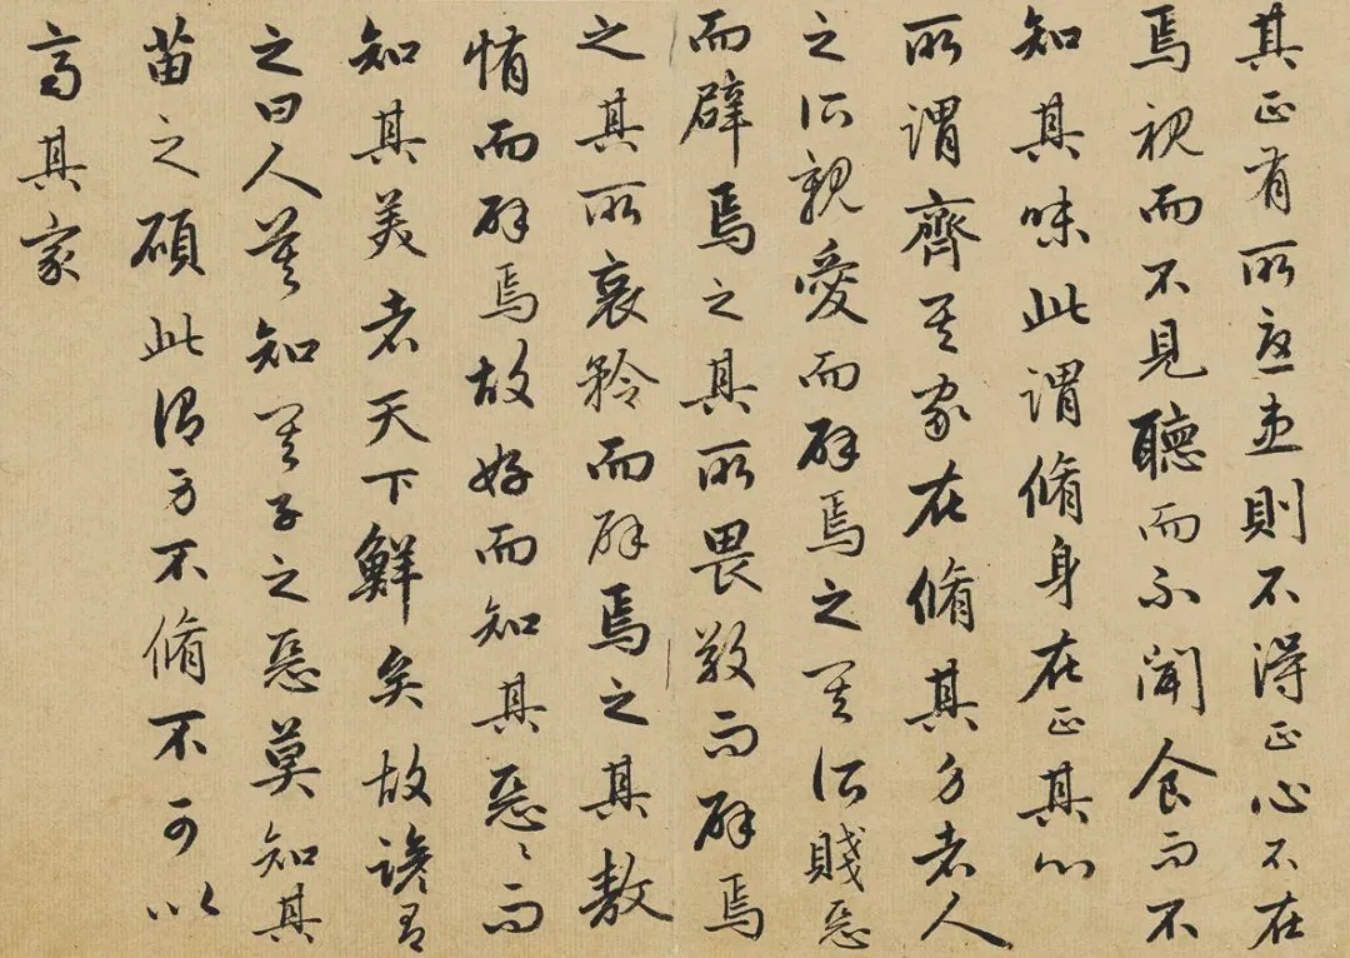 其正有所憂患則不得正心不在
焉視而不見聽而不聞食而不
知其味此謂脩身在正其心
所謂齊其家在脩其身者人
之所親愛而辟焉之其所賤惡
而辟焉之其所畏敬而辟焉
之其所哀矜而辟焉之其敖
惰而辟焉故好而知其惡惡而
知其美者天下鮮矣故諺有
之曰人莫知其子之惡莫知其
苗之碩此謂身不脩不可以
齊其家